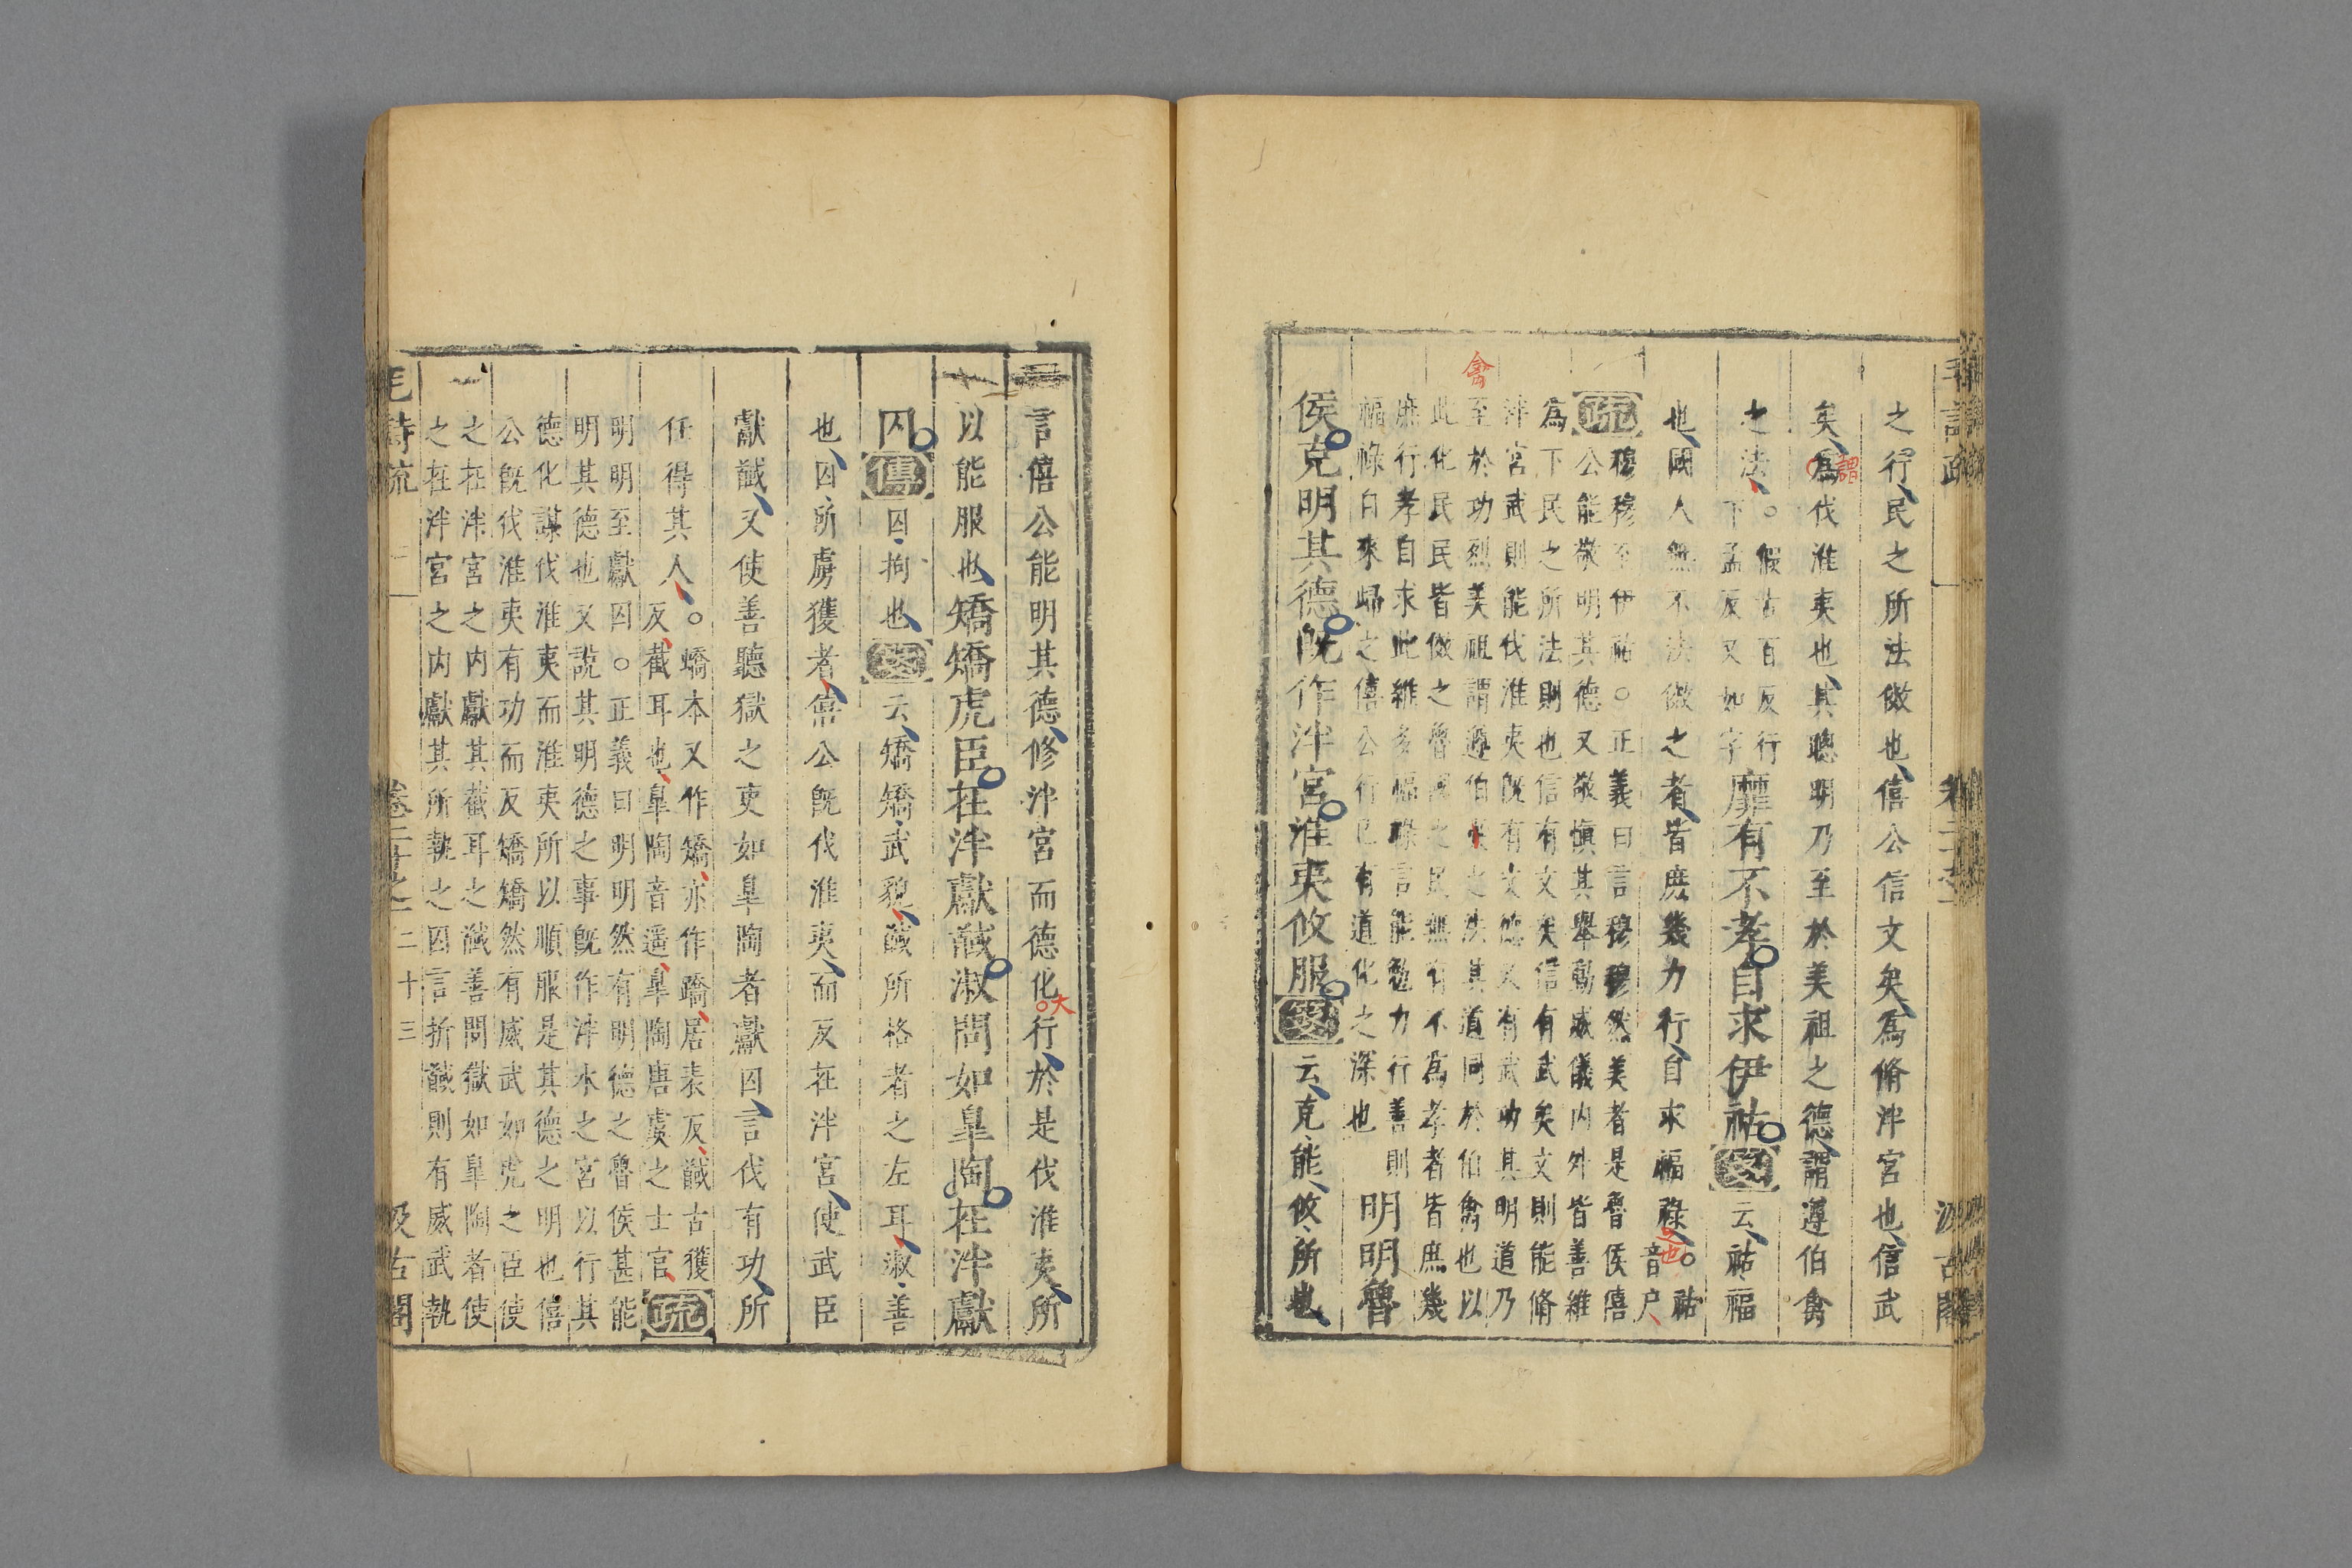 之行民之所法傚也僖公信文矣爲脩泮宮也信武
矣爲伐淮夷也其聰明乃至於美祖之德謂遵伯禽
謂
之法○假古百反行
下孟反又如字
靡有不孝自求伊祜箋云祜福
也國人無不法傚之者皆庶幾力行自求福祿○祜
音户
之也
疏
穆穆至伊祜○正義曰言穆穆然美者是魯侯僖
公能敬明其德又敬愼其舉動威儀內外皆善維
爲下民之所法則也信有文矣信有武矣文則能脩
泮宮武則能伐淮夷旣有文德又有武功其明道乃
禽
至於功烈美祖謂遵伯之法其道同於伯禽也以
此化民民皆傚之魯國之民無有不爲孝者皆庶幾
庶行孝自求此維多福祿言能勉力行善則
福祿自來歸之僖公行已有道化之深也
明明魯
侯克明其德旣作泮宮淮夷攸服箋云克能攸所也
言僖公能明其德修泮宮而德化行於是伐淮夷所
大
以能服也矯矯虎臣在泮獻馘淑問如皐陶在泮獻
囚傳囚拘也箋云矯矯武貌馘所格者之左耳淑善
也囚所虜獲者僖公旣伐淮夷而反在泮宮使武臣
獻馘又使善聽獄之吏如皐陶者獻囚言伐有功所
任得其人○矯本又作矯亦作蹻居表反馘古獲
反截耳也皐陶音遥皐陶唐虞之士官疏
明明至獻囚○正義曰明明然有明德之魯侯甚能
明其德也又說其明德之事旣作泮水之宮以行其
德化謀伐淮夷而淮夷所以順服是其德之明也僖
公旣伐淮夷有功而反矯矯然有威武如虎之臣使
之在泮宮之內獻其截耳之馘善問獄如皐陶者使
之在泮宮之內獻其所執之囚言折馘則有威武執
毛詩疏 卷二十之一 二十三 汲古閣